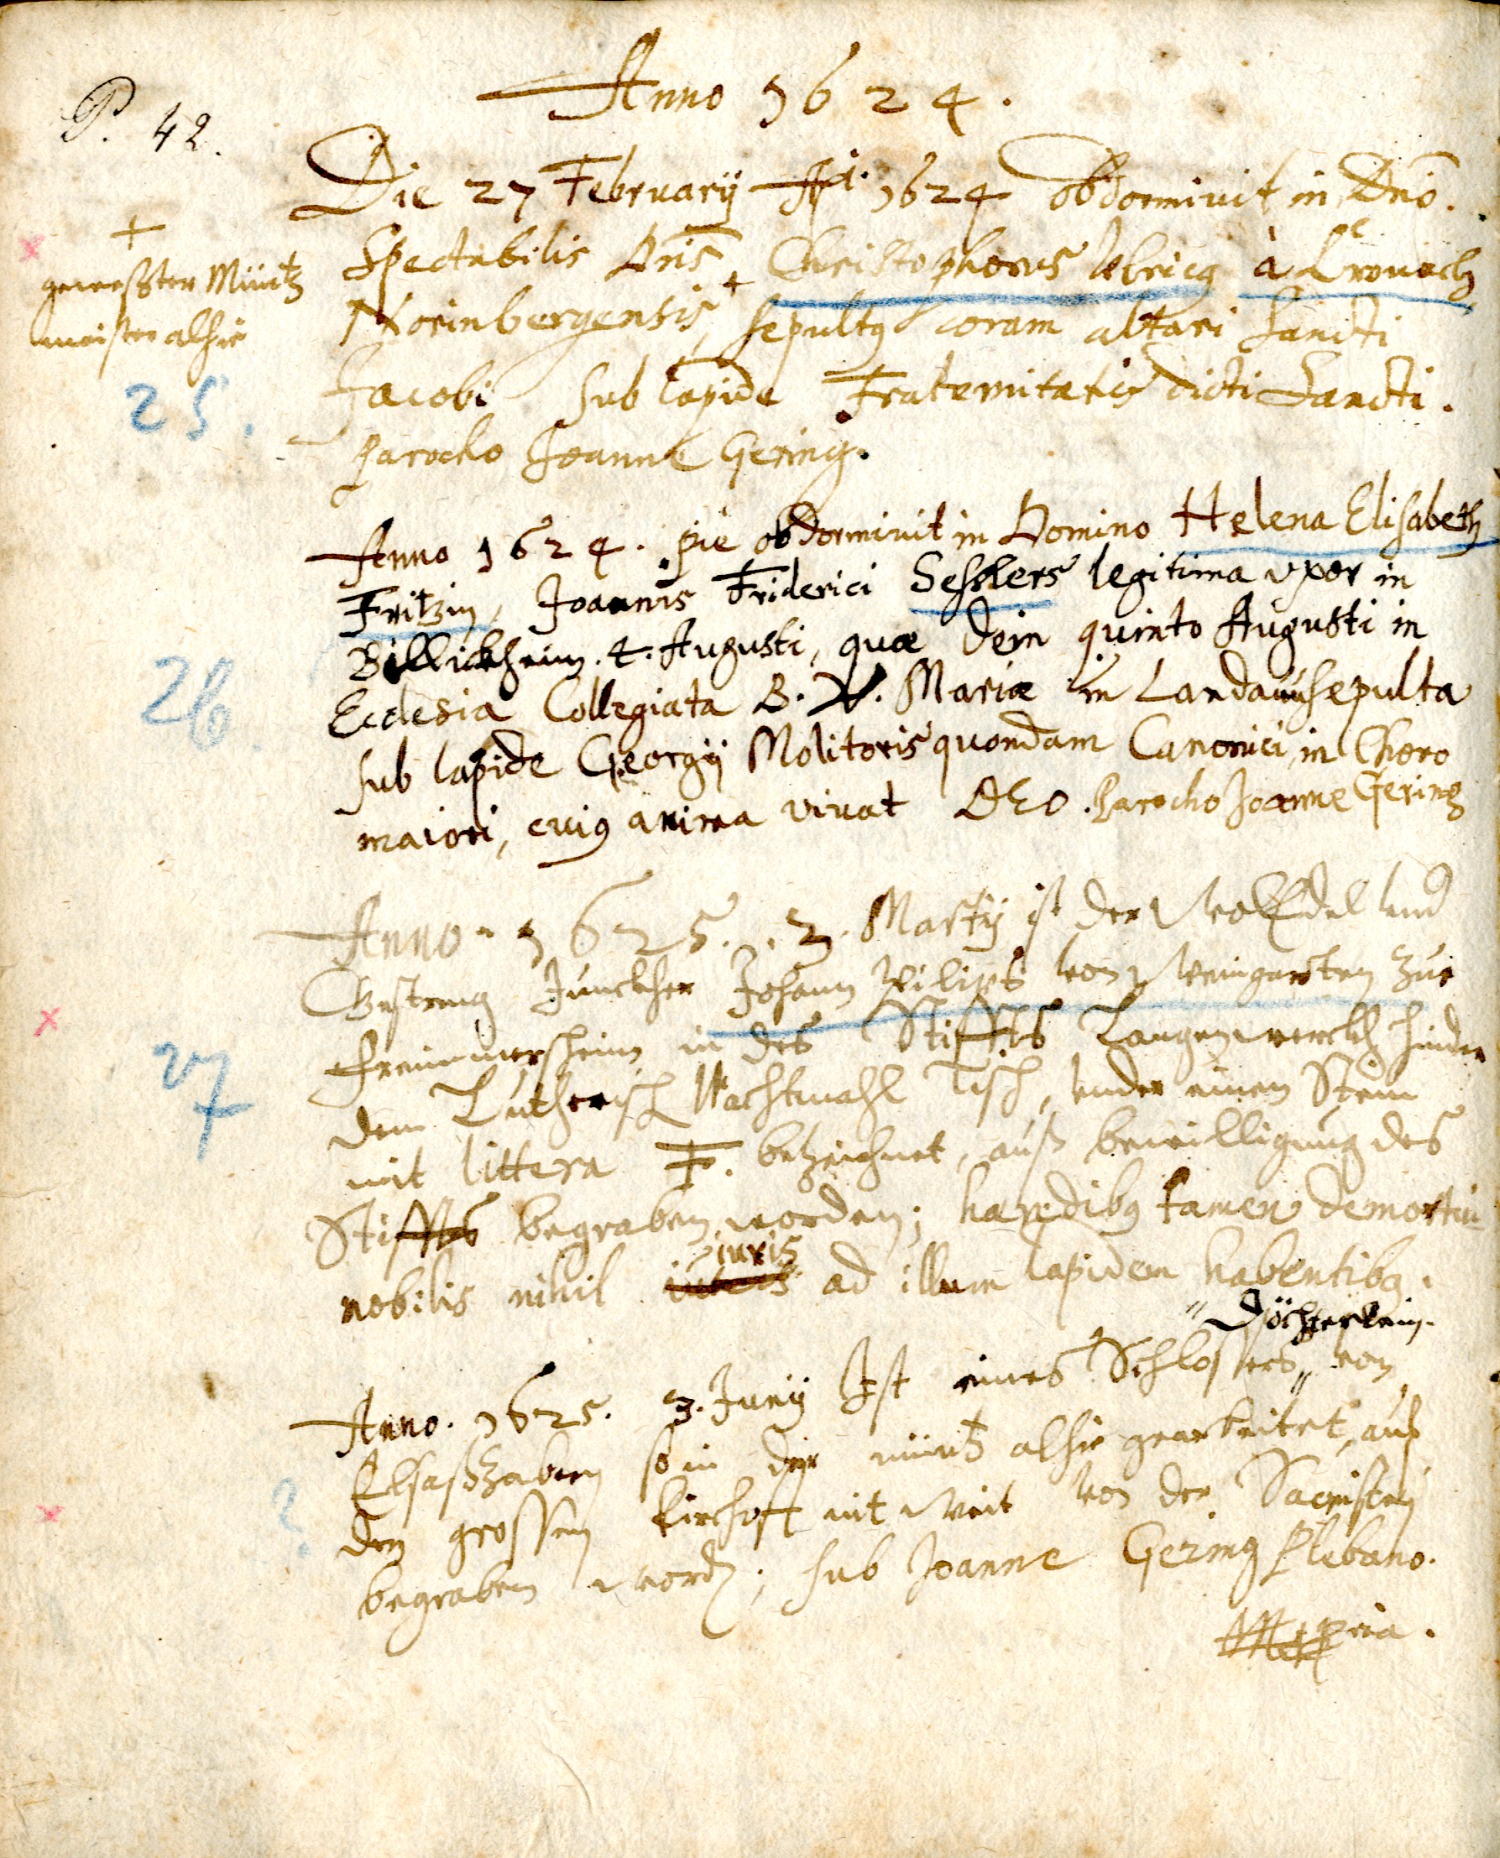 P. 42.
Anno 1624.
Die 27 Februarij A. 1624 obdormivit in Dno.
+
geweszter Müntz
meister alhie
Spectabilis Dns + Christophorus à Cronach
Norinbergensis, sepultq coram altari Sancti
25.
Jacobi sub lapide Fraternitatis dicti Sancti.
Parocho Joanne Gering.
Anno 1624. pie obdormivit in Domino Helena Elisabeth
Fritzin, Joannis Friderici Sesslers legitima vxor in
Billickheim. 4. Augusti, quæ dein quinto Augusti in
26.
Ecclesia Collegiata B. V. Mariæ in Landau sepulta
sub lapide Georgij Molitoris quondam Canonici, in Choro
maiori, cuiq anima vivat DEO. Parocho Joanne Gering
Anno. 1625. 2. Martij ist der WolEdel vnd
Gestreng Junckher Johann Philips von Weingarten zue
Freimersheim in des Stiffts Langenwerckh hinder
27
dem Lutherisch Nachtmahl Tisch, vnder einem Stein
mit littera F. bezeichnet, auß bewilligung des
Stiffts begraben worden; hæredibq tamen demortui
nobilis nihil iuris ad illum lapidem habentibq.
Döchterlein.
Anno. 1625. 3. Junij Ist eines Schlossers von
Elsaßzabern so in der müntz alhie gearbeitet, auf
?
den grossen kirchoff nit weit von der Sacristey
begraben word; sub Joanne Gering Plebano.
Mppria.